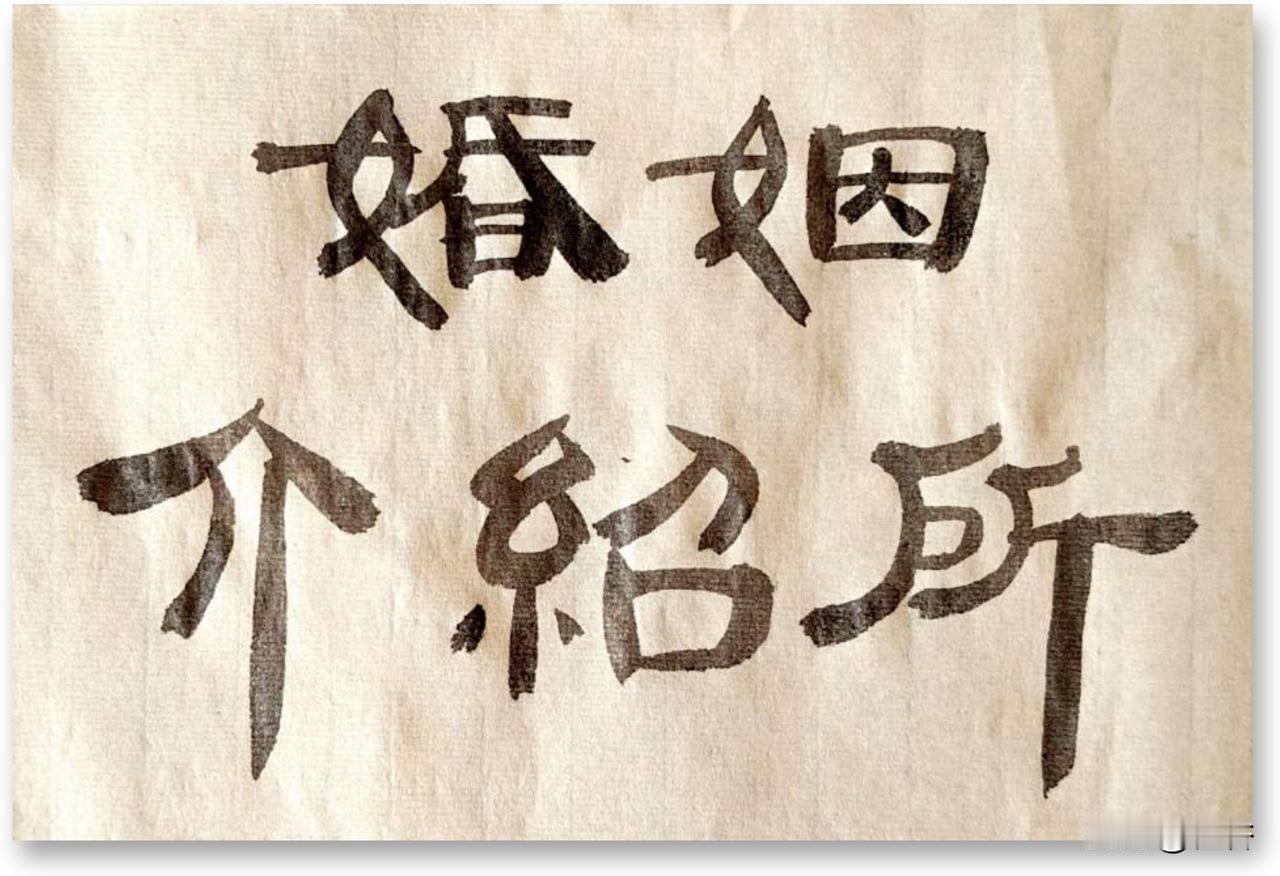 婚姻
介紹所